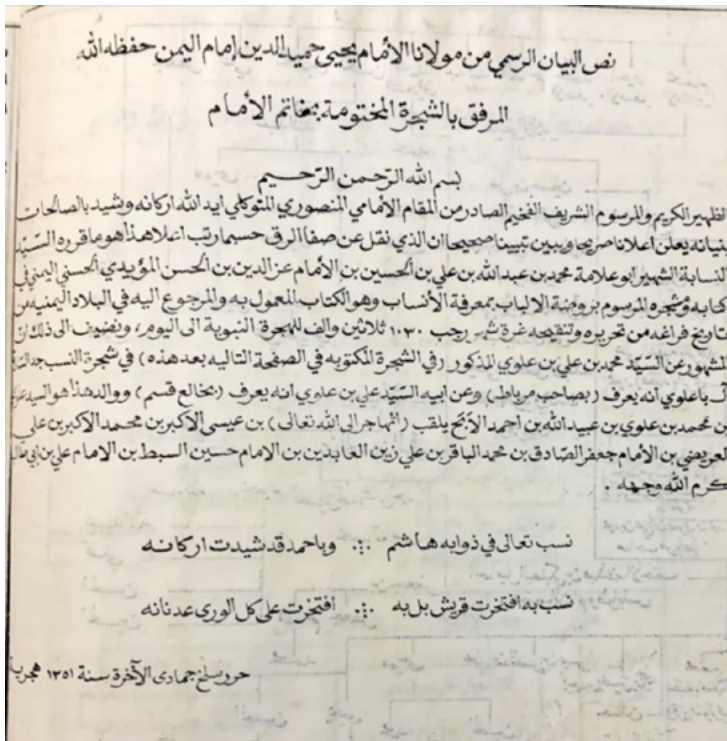 نص البيان الرسمي من مولانا الأمام يحيى حميد الدين إمام اليمن حفظه الله
المرفق بالشجرة المختومة بخاتم الأمام
بسم الله الرحمن الرحيم
الظهير الكريم والمرسوم الشريف الفخيم الصادر من المقام الأمامي المنصوري المتوكلي ايد الله اركانه وشيد بالصالحات
بنيانه يعلن اعلانا صريحا ويبين تبيينا صحيحا ان الذي نقل عن صفا الرق حسبما رتب اعلا هذا هو ما قرره السيد
النسابة الشهير ابو علامة محمد بن عبد الله بن علي بن الحسين بن الأمام عز الدين بن الحسن المؤيدي الحسني اليمني في
كتابه ومشجره المرسوم بروضة الالباب بمعرفة الأنساب وهو الكتاب المعمول به والمرجوع اليه في البلاد اليمنيه من
تاريخ فراغه من تحريره وتنقيحه غرة شهر رجب ١٠٣٠ ثلاثين والف للهجرة النبوية الى اليوم، ونضيف الى ذلك ان
المشهور عن السيد محمد بن علي بن علوي المذكور (في الشجرة المكتوبه في الصفحة التاليه بعد هذه) في شجرة النسب جد السادة
آل باعلوي انه يعرف (بصاحب مرباط) وعن ابيه السيد علي بن علوي انه يعرف (بخالع قسم) ووالد هذا هو السيد علوي
بن محمد بن علوي بن عبيد الله بن احمد الأبح يلقب (المهاجر الى الله تعالى) بن عيسى الاكبر بن محمد الاكبر بن علي
العريضي بن الأمام جعفر الصادق بن محمد الباقر بن علي زين العابدين بن الامام حسين السبط بن الامام علي بن ابي طالب
كرم الله وجهه .
نسب تعالى في ذوابه هاشم ∴ وباحمد قد شيدت اركانه
نسب به افتخرت قريش بل به ∴ افتخرت على كل الورى عدنانه
حرر سلخ جمادى الآخرة سنة ١٣٥١ هجرية